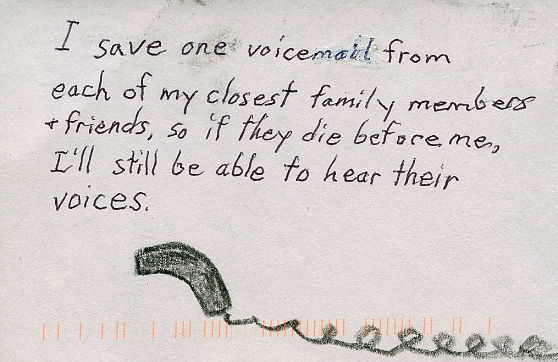 I save one voicemail from
each of my closest family members
+ friends, so if they die before me,
I'll still be able to hear their
voices.